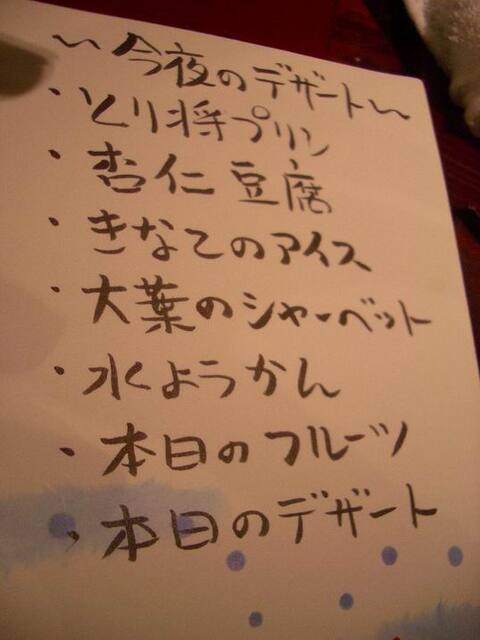 〜今夜のデザート〜
・とり将プリン
・杏仁豆腐
・きなこのアイス
・大葉のシャーベット
・水ようかん
・本日のフルーツ
・本日のデザート